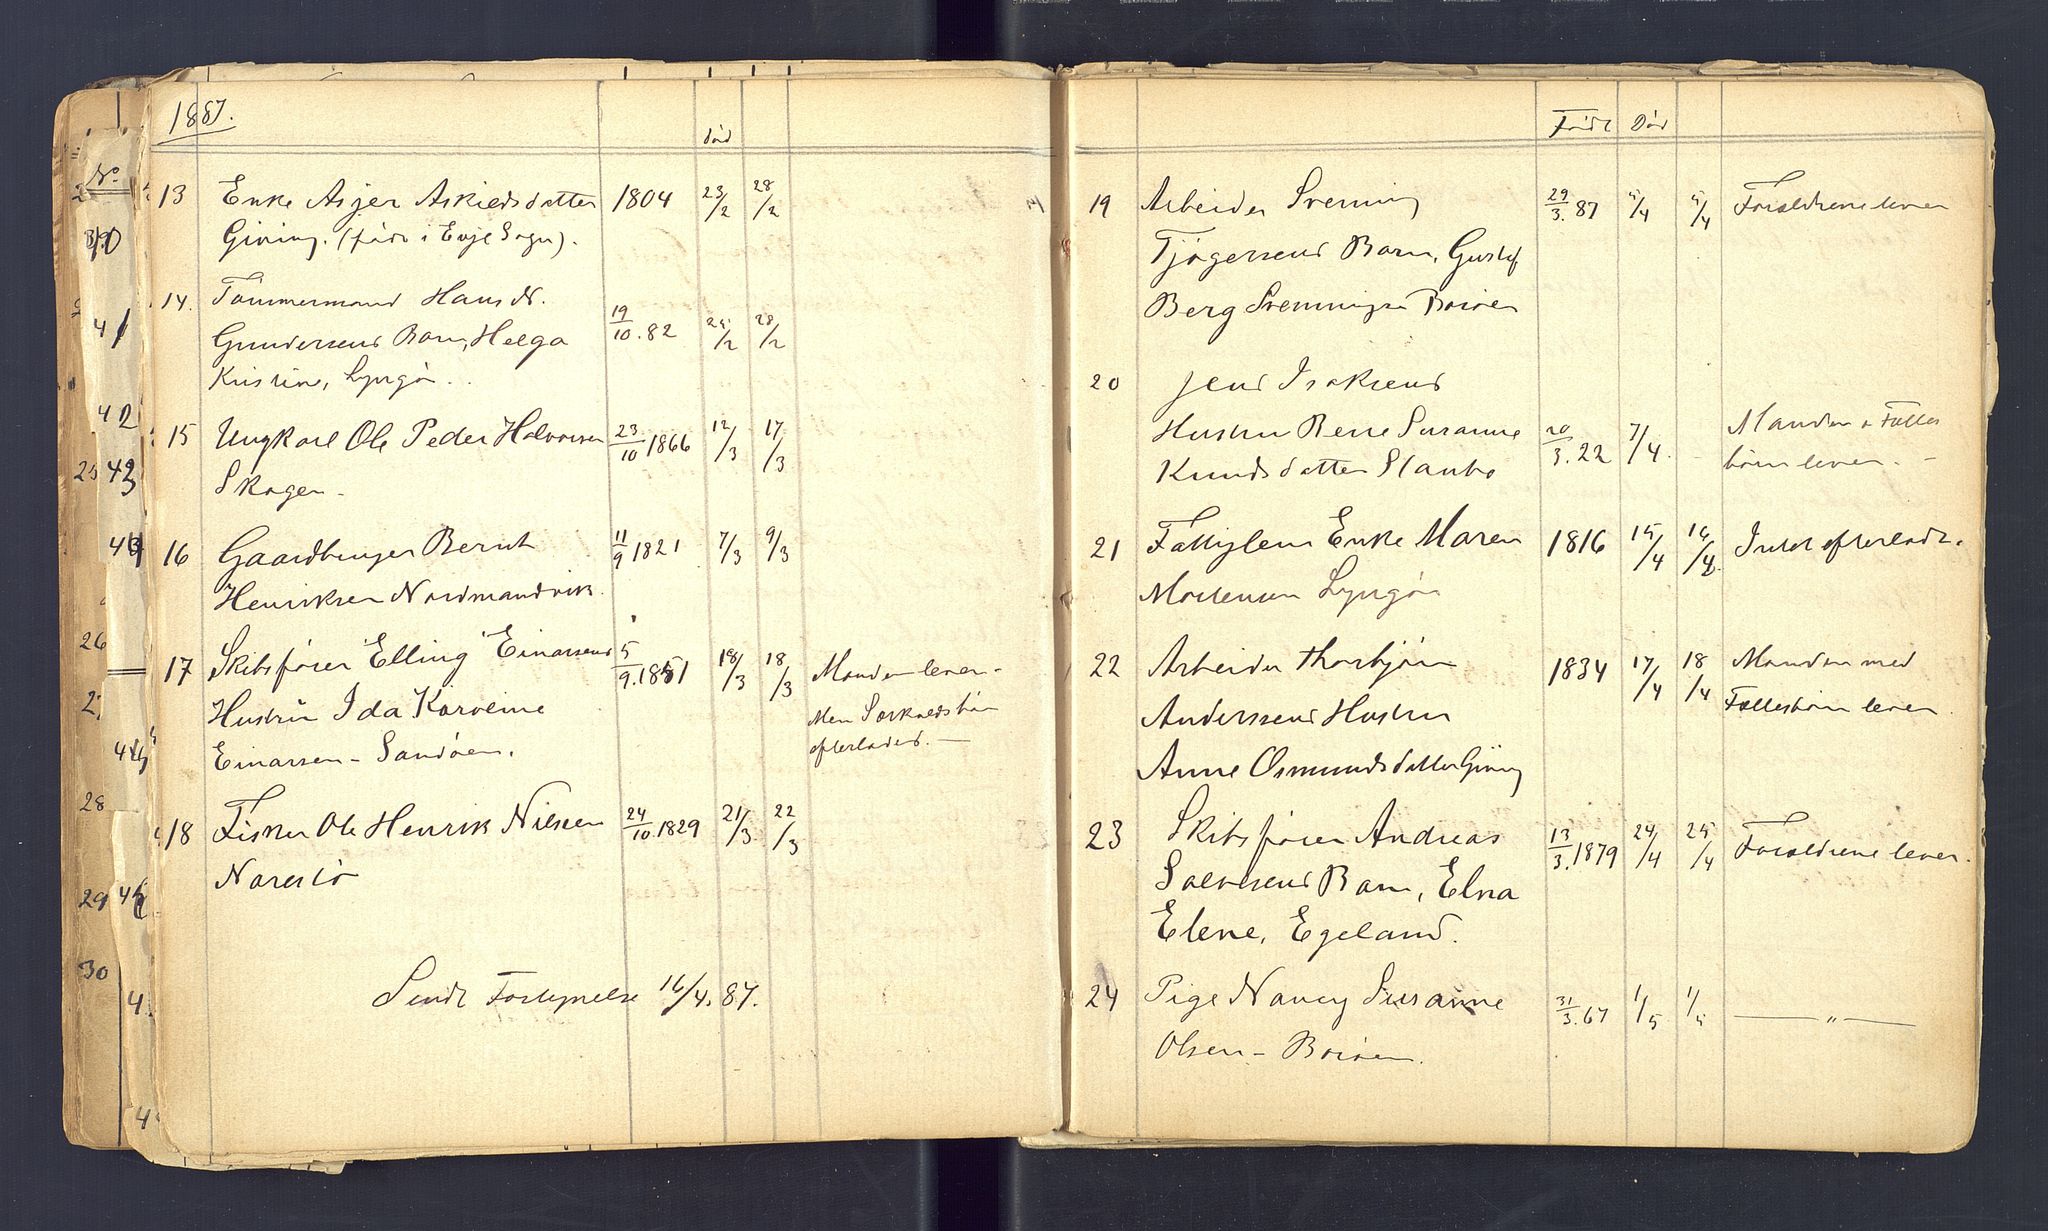 1887.
Død
13 Enke Asjer Askiedsdatter 1804 23/2 28/2
Giving. (født i Evje Sogn).
14. Tømmermand Hans N.
Gundersens Barn, Helga 19/10.82 25/2 28/2
Kristine, Lyngør.
15 Ungkarl Ole Peder Halvorsen 23/10 1866 12/3 17/3
Skogen -
16 Gaardbruger Bernt 11/9 1821 7/3 9/3
Henriksen Nordmandvik.
17 Skibsfører Elling Einarsens 5/9.1851 18/3 18/3 Manden lever -
Hustru Ida Karoline Men Særkuldsbørn
Einarsen - Sandøen. efterlades. -
18 Fisker Ole Henrik Nilsen 24/10.1829 21/3 22/3
Narestø
Sendt Fortegnelse 16/4.87.
Født Død
19 Arbeider Svenning 29/3.87 5/4 5/4 Forældrene lever
Tjøgersens Barn, Gustaf
Berg Svenningsen Borøen
20 Jens Isaksens
Hustru Berte Susanne 20/3.22 7/4. - Manden & Fælles
Knudsdatter Staubo børn lever. -
21 Fattiglem Enke Maren 1816 15/4 16/4 Intet efterladt.
Mortensen Lyngør
22 Arbeider Thorbjørn 1834 17/4 18/4 Manden med
Anderssens Hustru Fællesbørn lever.
Anne Osmundsdatter Giving
23 Skibsfører Andreas 13/3.1879 24/4 25/4 Forældrene lever.
Salvesens Barn, Elna
Elene, Egeland.
24 Pige Nancy Susanne 31/3.67 1/5 1/5 — „ —
Olsen - Borøen.
No
41
42
25 43
26
28
29
30